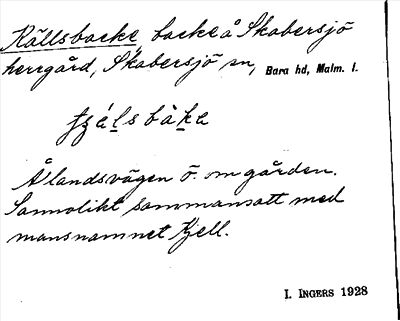 Källsbacke, backe å Skabersjö
herrgård, Skabersjö sn, Bara hd, Malm. l.
Ålandsvägen ö. om gården.
Sannolikt sammansatt med
mansnamnet Kjell.
I. INGERS 1928